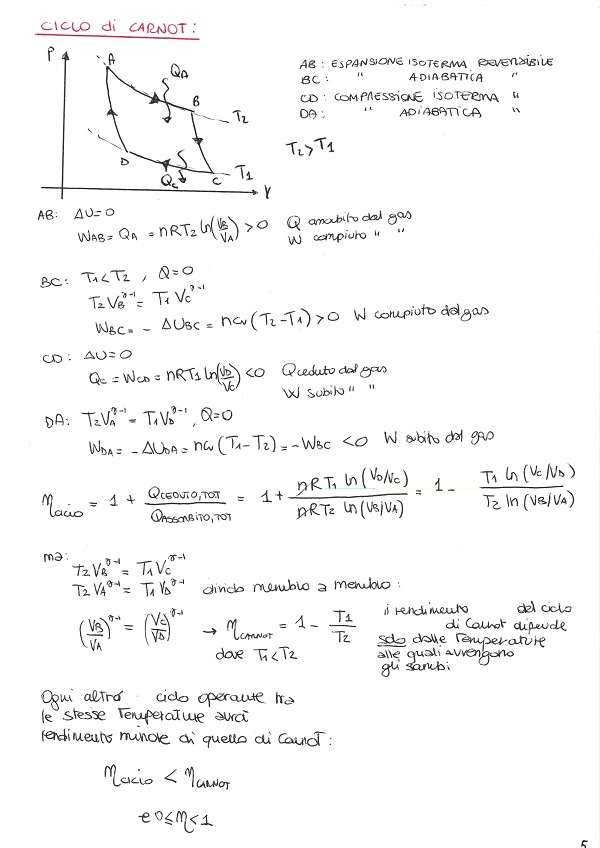 CICLO di CARNOT:
P
A
QA
B
T2
D
T1
Qc
C
V
AB: ESPANSIONE ISOTERMA REVERSIBILE
BC: " ADIABATICA "
CD: COMPRESSIONE ISOTERMA "
DA: " ADIABATICA "
T2>T1
AB: ΔU=0
WAB = QA = nRT2 ln(VB/VA) > 0 Q assorbito dal gas
W compiuto " "
BC: T1<T2, Q=0
T2VB^γ-1 = T1VC^γ-1
WBC = - ΔUBC = ncv(T2-T1)>0 W compiuto dal gas
CD: ΔU=0
Qc = WCD = nRT1 ln(VD/VC) <0 Q ceduto dal gas
W subito " "
DA: T2VA^γ-1 = T1VD^γ-1, Q=0
WDA = - ΔUDA = ncv(T1-T2) = -WBC <0 W subito dal gas
ηciclo = 1 + QCEDUTO,TOT/QASSORBITO,TOT = 1 + nRT1 ln(VD/VC)/nRT2 ln(VB/VA) = 1 - T1 ln(VC/VD)/T2 ln(VB/VA)
ma:
T2VB^γ-1 = T1VC^γ-1
T2VA^γ-1 = T1VD^γ-1 divido membro a membro:
(VB/VA)^γ-1 = (VC/VD)^γ-1 → ηCARNOT = 1 - T1/T2
dove T1<T2
il rendimento del ciclo
di Carnot dipende
solo dalle Temperature
alle quali avvengono
gli scambi
Ogni altro ciclo operante tra
le stesse Temperature avrà
rendimento minore di quello di Carnot:
ηciclo < ηCARNOT
e 0≤η<1
5